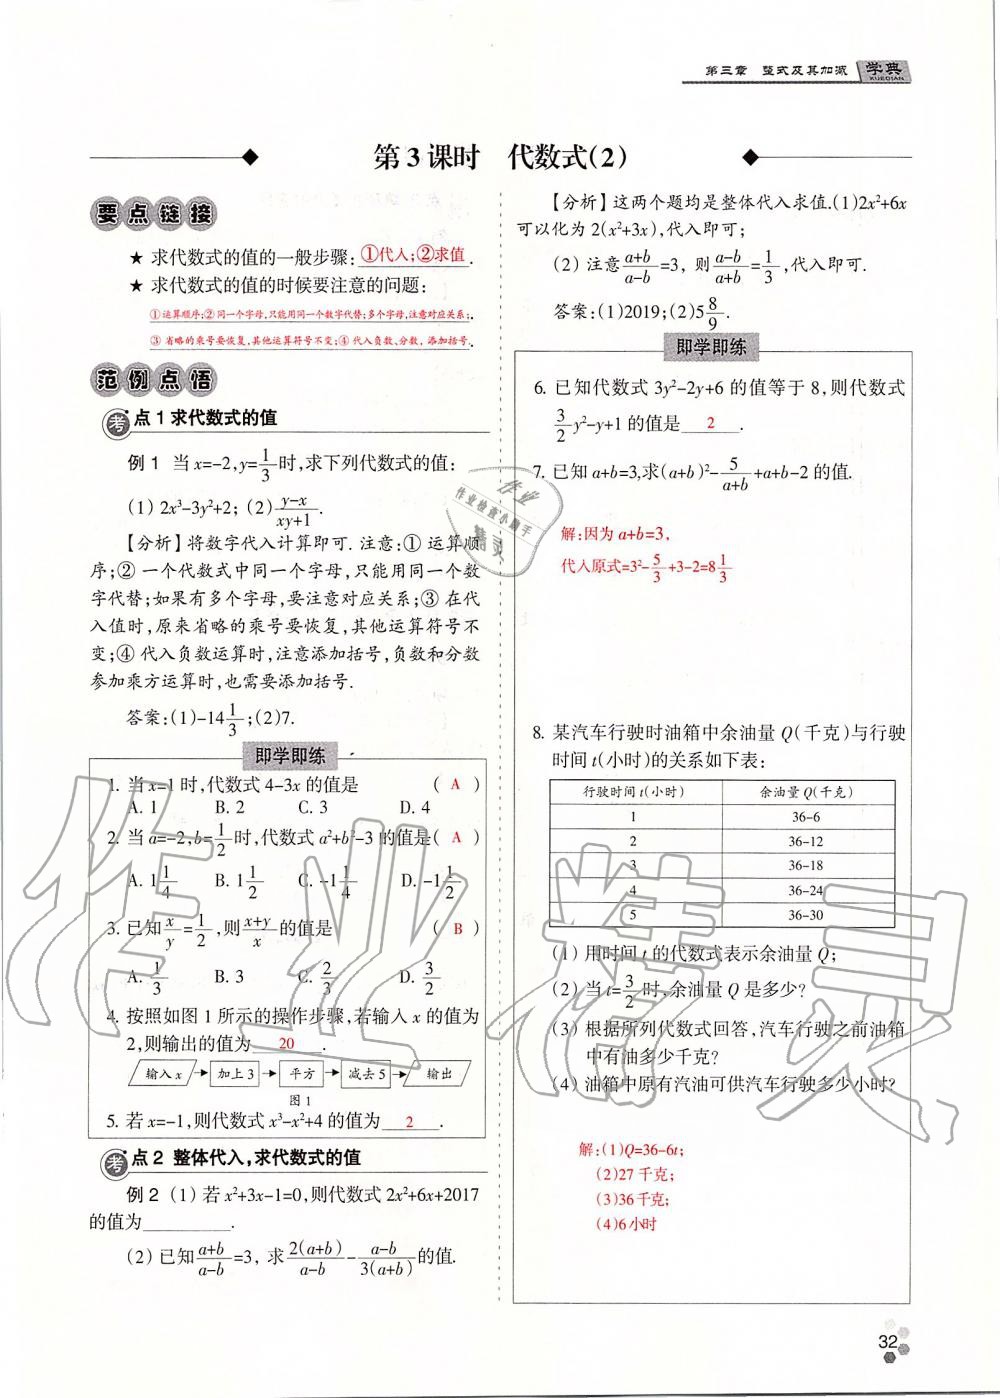 第三章 整式及其加减 学典
XUEDIAN
第3课时 代数式(2)
要点链接
★ 求代数式的值的一般步骤:①代入;②求值.
★ 求代数式的值的时候要注意的问题:
①运算顺序;②同一个字母,只能用同一个数字代替;多个字母,注意对应关系;
③省略的乘号要恢复,其他运算符号不变;④代入负数、分数,添加括号.
范例点悟
考点1 求代数式的值
例1 当x=-2,y=1/3时,求下列代数式的值:
(1) 2x³-3y²+2; (2) (y-x)/(xy+1).
【分析】将数字代入计算即可. 注意:①运算顺
序;②一个代数式中同一个字母,只能用同一个数
字代替;如果有多个字母,要注意对应关系;③在代
入值时,原来省略的乘号要恢复,其他运算符号不
变;④代入负数运算时,注意添加括号,负数和分数
参加乘方运算时,也需要添加括号.
答案:(1)-14 1/3;(2)7.
即学即练
1. 当x=1时,代数式4-3x的值是 ( A )
A. 1 B. 2 C. 3 D. 4
2. 当a=-2,b=1/2时,代数式a²+b²-3的值是( A )
A. 1 1/4 B. 1 1/2 C. -1 1/4 D. -1 1/2
3. 已知x/y=1/2,则(x+y)/x的值是 ( B )
A. 1/3 B. 3 C. 2/3 D. 3/2
4. 按照如图1所示的操作步骤,若输入x的值为
2,则输出的值为 20 .
输入x 加上3 平方 减去5 输出
图1
5. 若x=-1,则代数式x³-x²+4的值为 2 .
考点2 整体代入,求代数式的值
例2 (1) 若x²+3x-1=0,则代数式2x²+6x+2017
的值为______.
(2) 已知(a+b)/(a-b)=3, 求2(a+b)/(a-b)-(a-b)/3(a+b)的值.
【分析】这两个题均是整体代入求值.(1)2x²+6x
可以化为2(x²+3x),代入即可;
(2) 注意(a+b)/(a-b)=3, 则(a-b)/(a+b)=1/3,代入即可.
答案:(1)2019;(2)5 8/9.
即学即练
6. 已知代数式3y²-2y+6的值等于8,则代数式
3/2y²-y+1的值是 2 .
7. 已知a+b=3,求(a+b)²-5/(a+b)+a+b-2的值.
解:因为a+b=3,
代入原式=3²-5/3+3-2=8 1/3
8. 某汽车行驶时油箱中余油量Q(千克)与行驶
时间t(小时)的关系如下表:
行驶时间t(小时) 余油量Q(千克)
1 36-6
2 36-12
3 36-18
4 36-24
5 36-30
(1) 用时间t的代数式表示余油量Q;
(2) 当t=3/2时,余油量Q是多少?
(3) 根据所列代数式回答,汽车行驶之前油箱
中有油多少千克?
(4) 油箱中原有汽油可供汽车行驶多少小时?
解:(1)Q=36-6t;
(2)27千克;
(3)36千克;
(4)6小时
32
作业
作业检查小助手
精灵
作业精灵